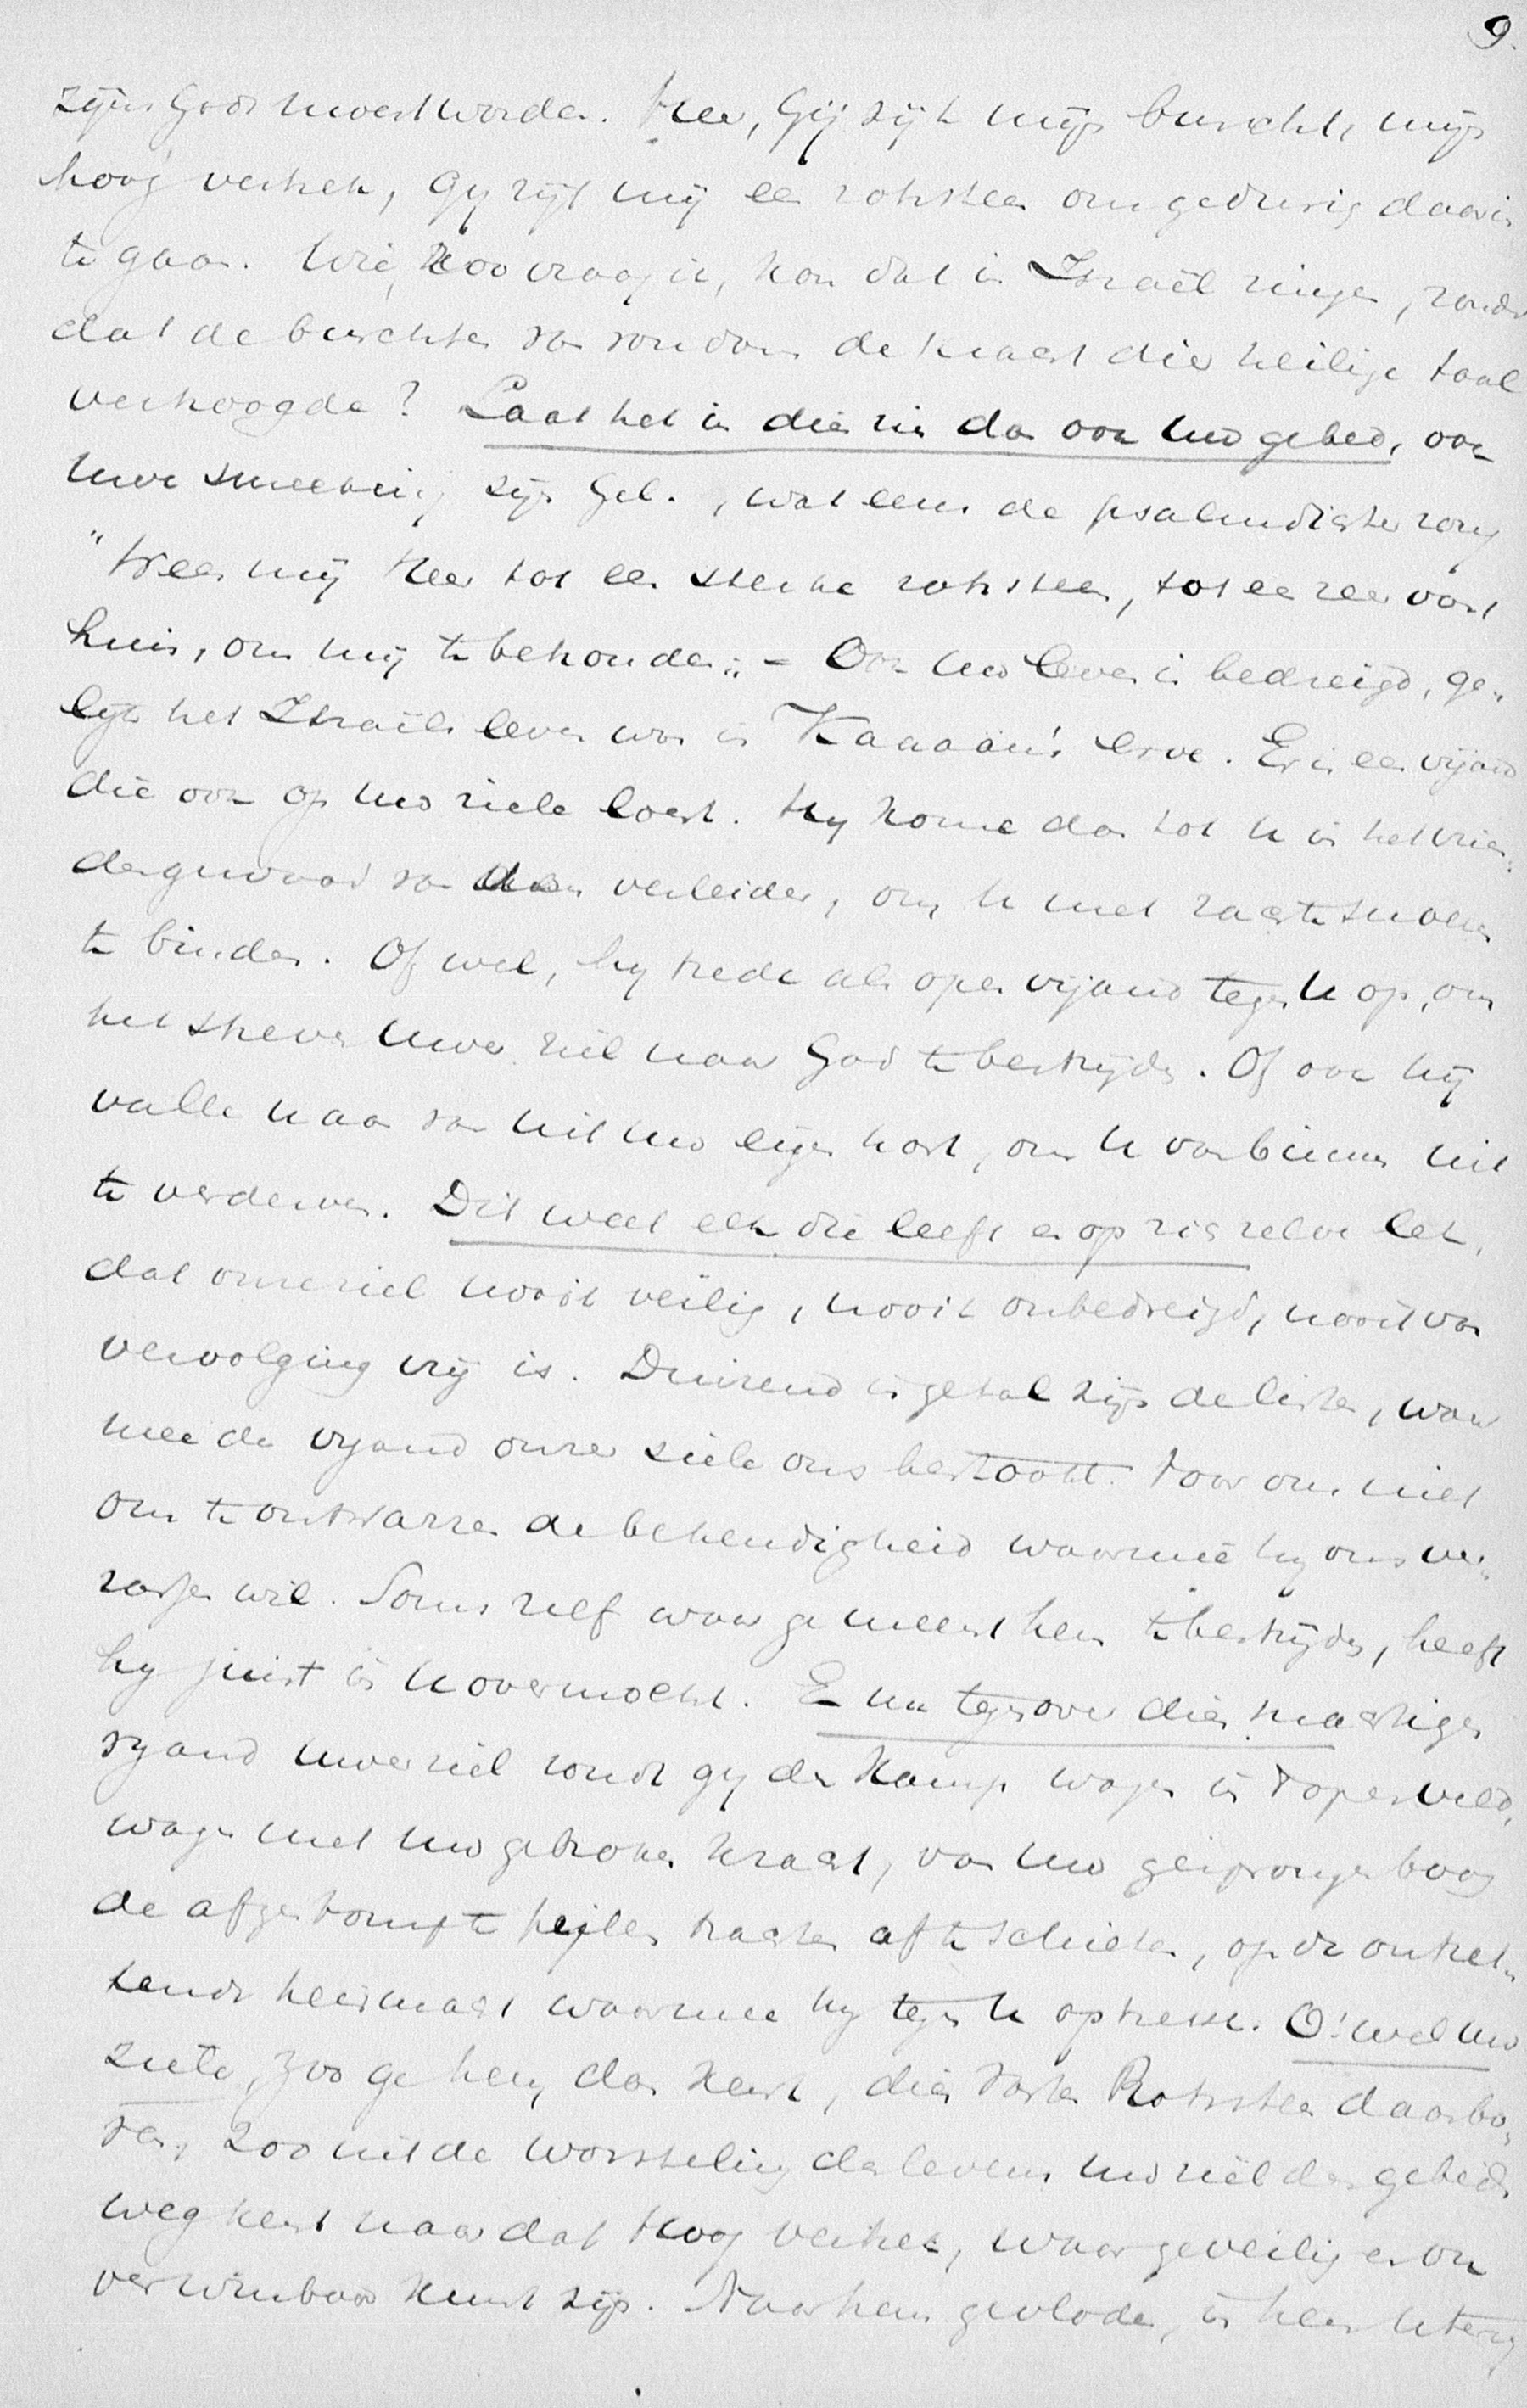 9.
zijns Gods moest worden. Heer, Gij zijt mijn burcht, mijn
hoog vertrek, Gij zijt mij een rotssteen om gedurig daarin
te gaan. Wie, zoo vraag ik, kon dat in Israël zingen, zonder
dat de burchten van rondom de kracht dier heilige taal
verhoogde? Laat het in dien zin dan ook uw gebed, ook
uwe smeeking zijn Gel., wat eens de psalmdichter zong
"Wees mij Heer tot een sterke rotssteen, tot een zeer vast
huis, om mij te behouden" – Ook uw leven is bedreigd, ge-
lijk het Israëls leven was in Kanaän's erve. Er is een vijand
die ook op uw ziele loert. Hij kome dan tot u in het vrien-
dengewaad van den verleider, om u met zachte snoeren
te binden. Of wel, hij trede als open vijand tegen u op, om
het streven uwer ziel naar God te bestrijden. Of ook hij
valle u aan van uit uw eigen hart, om u van binnen uit
te verderven. Dit weet elk die leeft en op zich zelve let,
dat onze ziel nooit veilig, nooit onbedreigd, nooit van
vervolging vrij is. Duizend in getal zijn de listen, waar
mee de vijand onzer ziele ons bestookt. Voor ons niet
om te ontwarren de behendigheid waarmee hij ons ver-
rassen wil. Soms zelf waar ge meent hem te bestrijden, heeft
hij juist in u overmocht. En nu tegenover dien machtigen
vyand uwer ziel zoudt gij den kamp wagen in 't open veld,
wagen met uw gebroken kracht, van uw gesprongen boog
de afgestompte pijlen trachten af te schieten, op de ontzet-
tende heirmacht waarmee hij tegen u optreedt. O! wel uw
ziele, zoo ge hem dan kent, dien vasten Rotssteen daarbo-
ven, zoo uit de worsteling des levens uw ziel des gebeds
weg kent naar dat Hoog vertrek, waar ge veilig en on
verwinbaar kunt zijn. Naar hem gevloden, in hem u terug